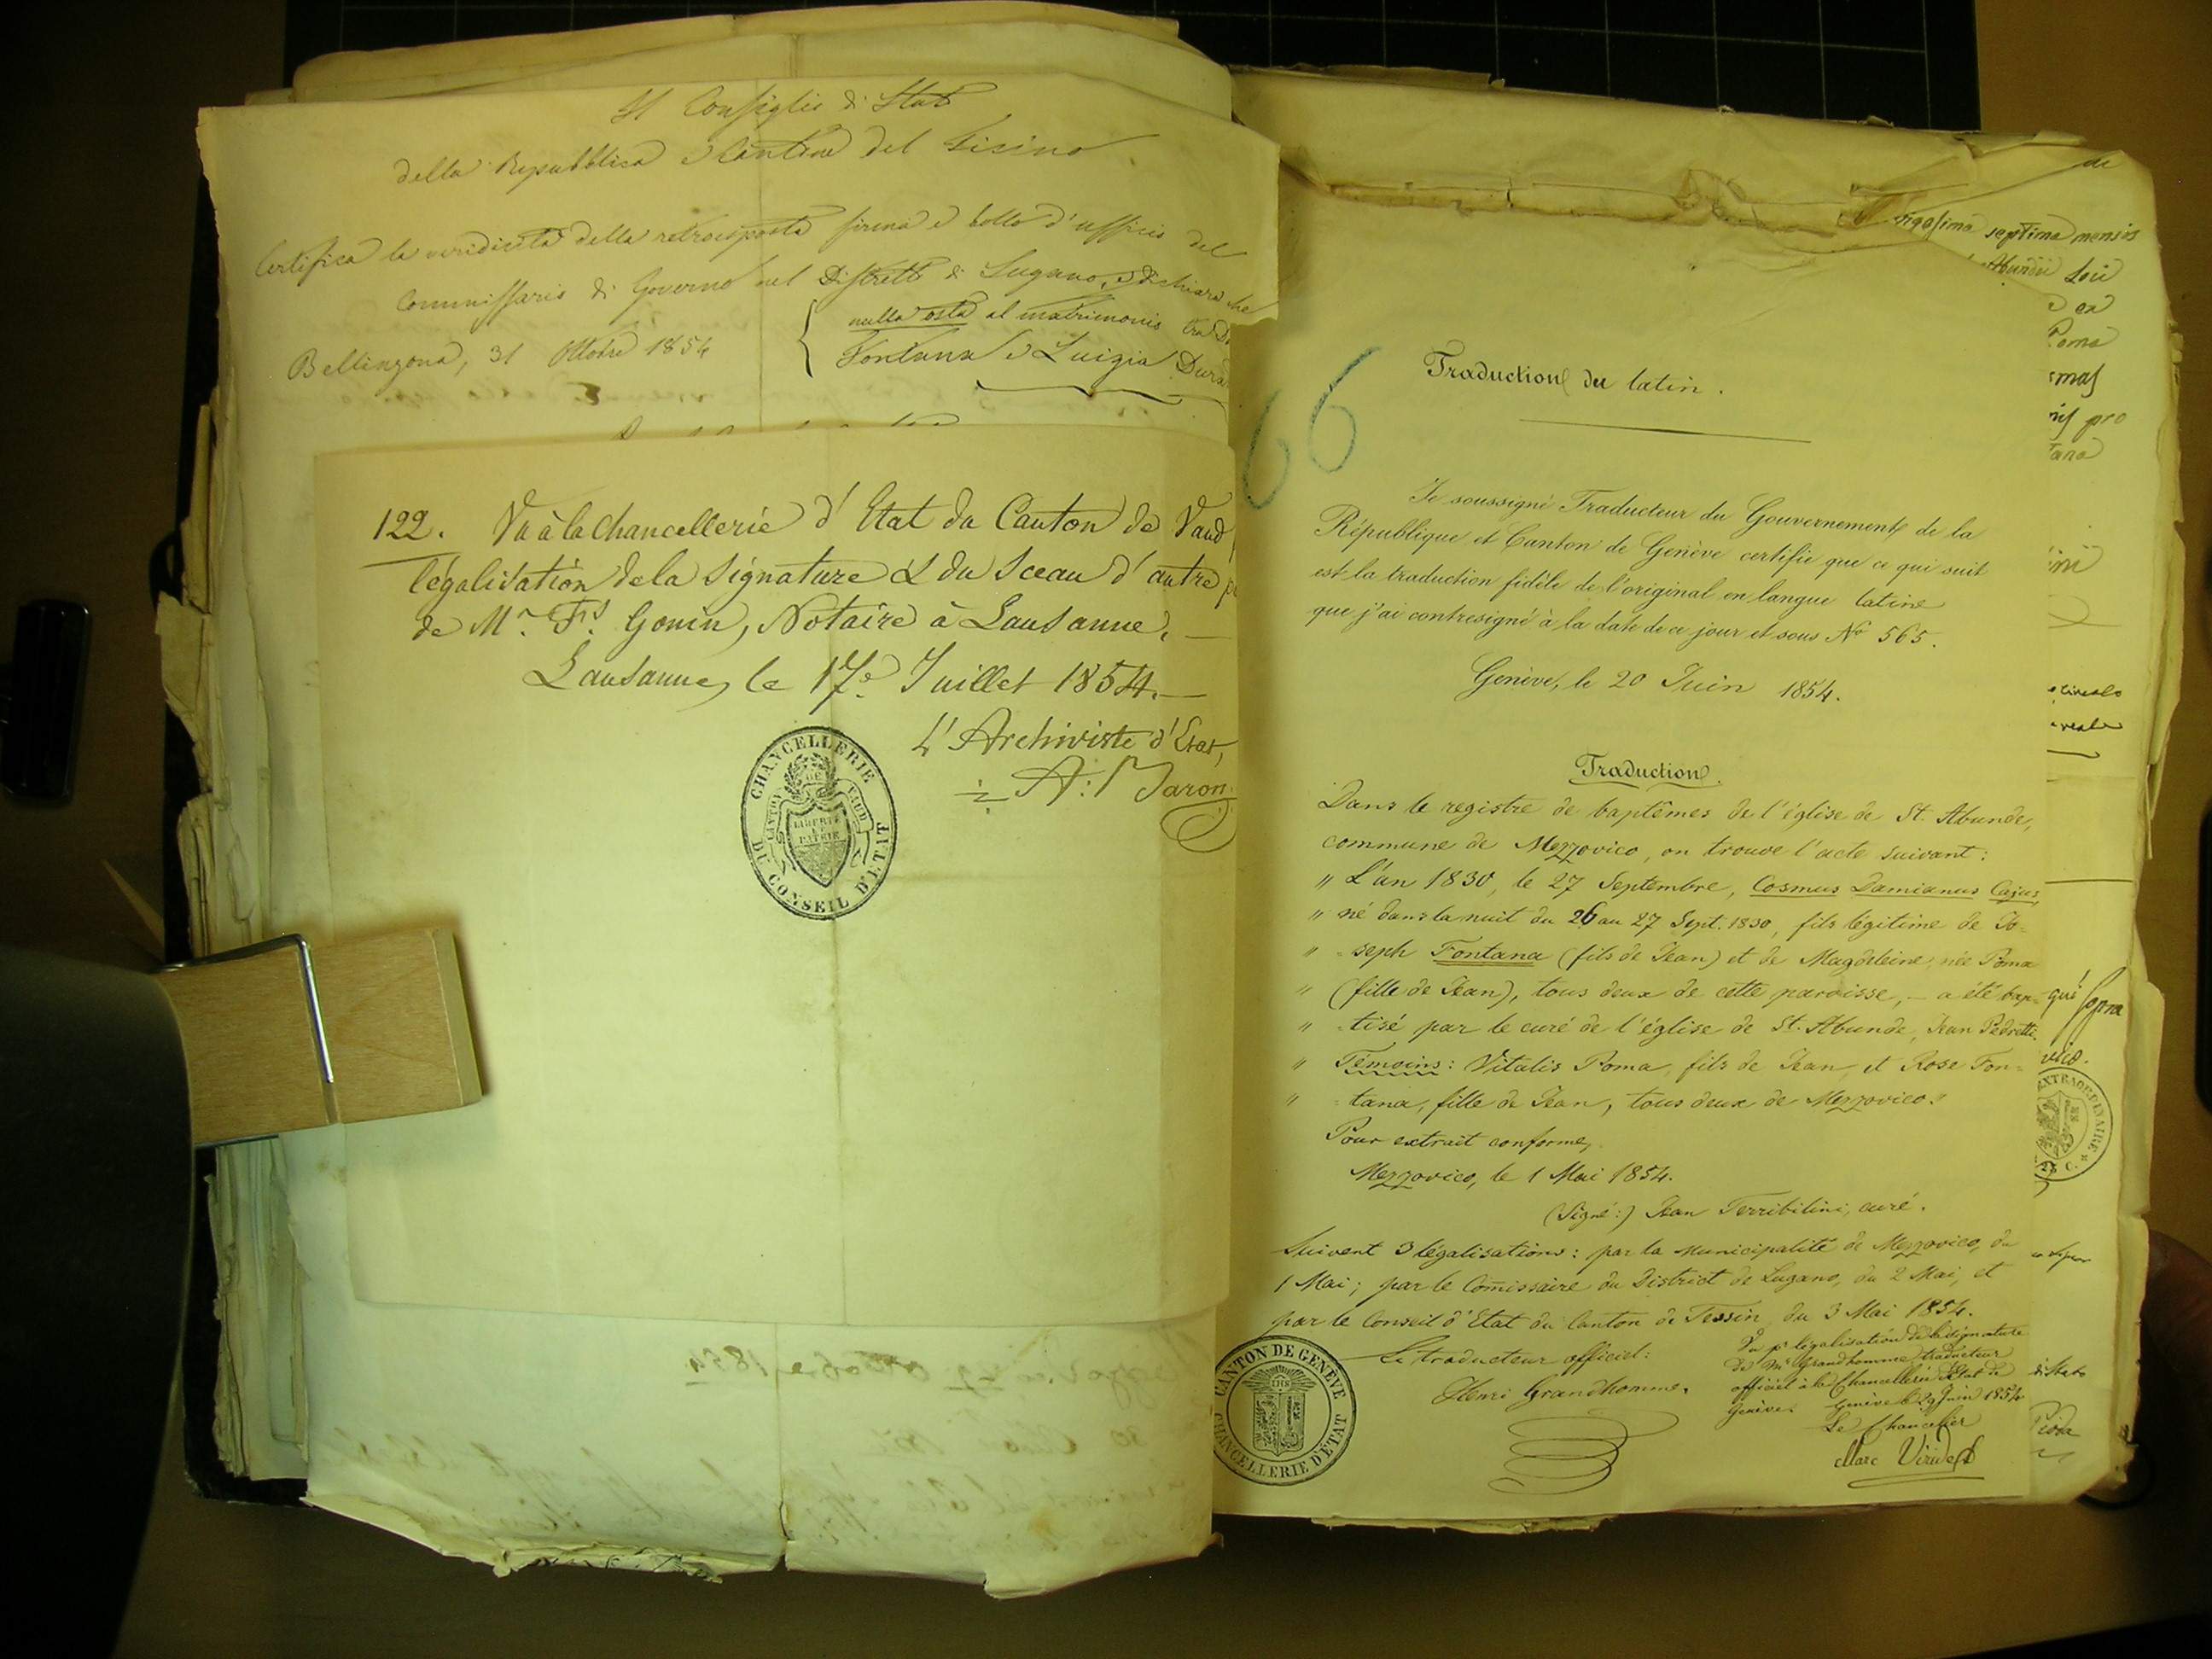 Il Consiglio di Stato
della Repubblica e Cantone del Ticino
Certifica la veridicità della retroesposta firma e bollo d'ufficio del
Commissario di Governo nel Distretto di Lugano, e dichiara che
nulla osta al matrimonio tra
Fontana e Luigia
Bellinzona, 31 Ottobre 1854
122. Vu à la Chancellerie d'Etat du Canton de Vaud
légalisation de la signature & du Sceau d'autre
de Mr. Fs. Gonin, Notaire à Lausanne.
Lausanne, le 17e. Juillet 1854.
L'Archiviste d'Etat,
A: Baron
CHANCELLERIE
DU CONSEIL D'ETAT
CANTON DE VAUD
LIBERTÉ
ET
PATRIE
octobre 1854
66
Traduction du latin.
Je soussigné Traducteur du Gouvernement de la
République et Canton de Genève certifie que ce qui suit
est la traduction fidèle de l'original en langue latine
que j'ai contresigné à la date de ce jour et sous No 565.
Genève, le 20 Juin 1854.
Traduction.
Dans le registre de baptêmes de l'église de St. Abunde,
commune de Mezzovico, on trouve l'acte suivant:
" L'an 1830, le 27 Septembre, Cosmus Damianus Cajus,
" né dans la nuit du 26 au 27 Sept. 1830, fils légitime de Jo=
" =seph Fontana (fils de Jean) et de Magdeleine, née Poma
" (fille de Jean), tous deux de cette paroisse, – a été bap=
" =tisé par le curé de l'église de St. Abunde, Jean Pedretti.
" Témoins: Vitalis Poma, fils de Jean, et Rose Fon=
" =tana, fille de Jean, tous deux de Mezzovico."
Pour extrait conforme,
Mezzovico, le 1 Mai 1854.
(Signé:) Jean Terribilini, curé.
Suivent 3 légalisations: par la Municipalité de Mezzovico, du
1 Mai; par le Comissaire du District de Lugano, du 2 Mai, et
par le Conseil d'Etat du Canton de Tessin du 3 Mai 1854.
Le traducteur officiel:
Henri Grandhomme.
Vu pr légalisation de la signature
de Mr Grandhomme, traducteur
officiel à la Chancellerie d'Etat de
Genève. Genève le 29 Juin 1854
Le Chancelier
Marc Viridet
CANTON DE GENÈVE
CHANCELLERIE D'ÉTAT
IHS
de
vigesima septima mensis
pro
qui sopra
EXTRAORDINAIRE
25 C.
di Stato